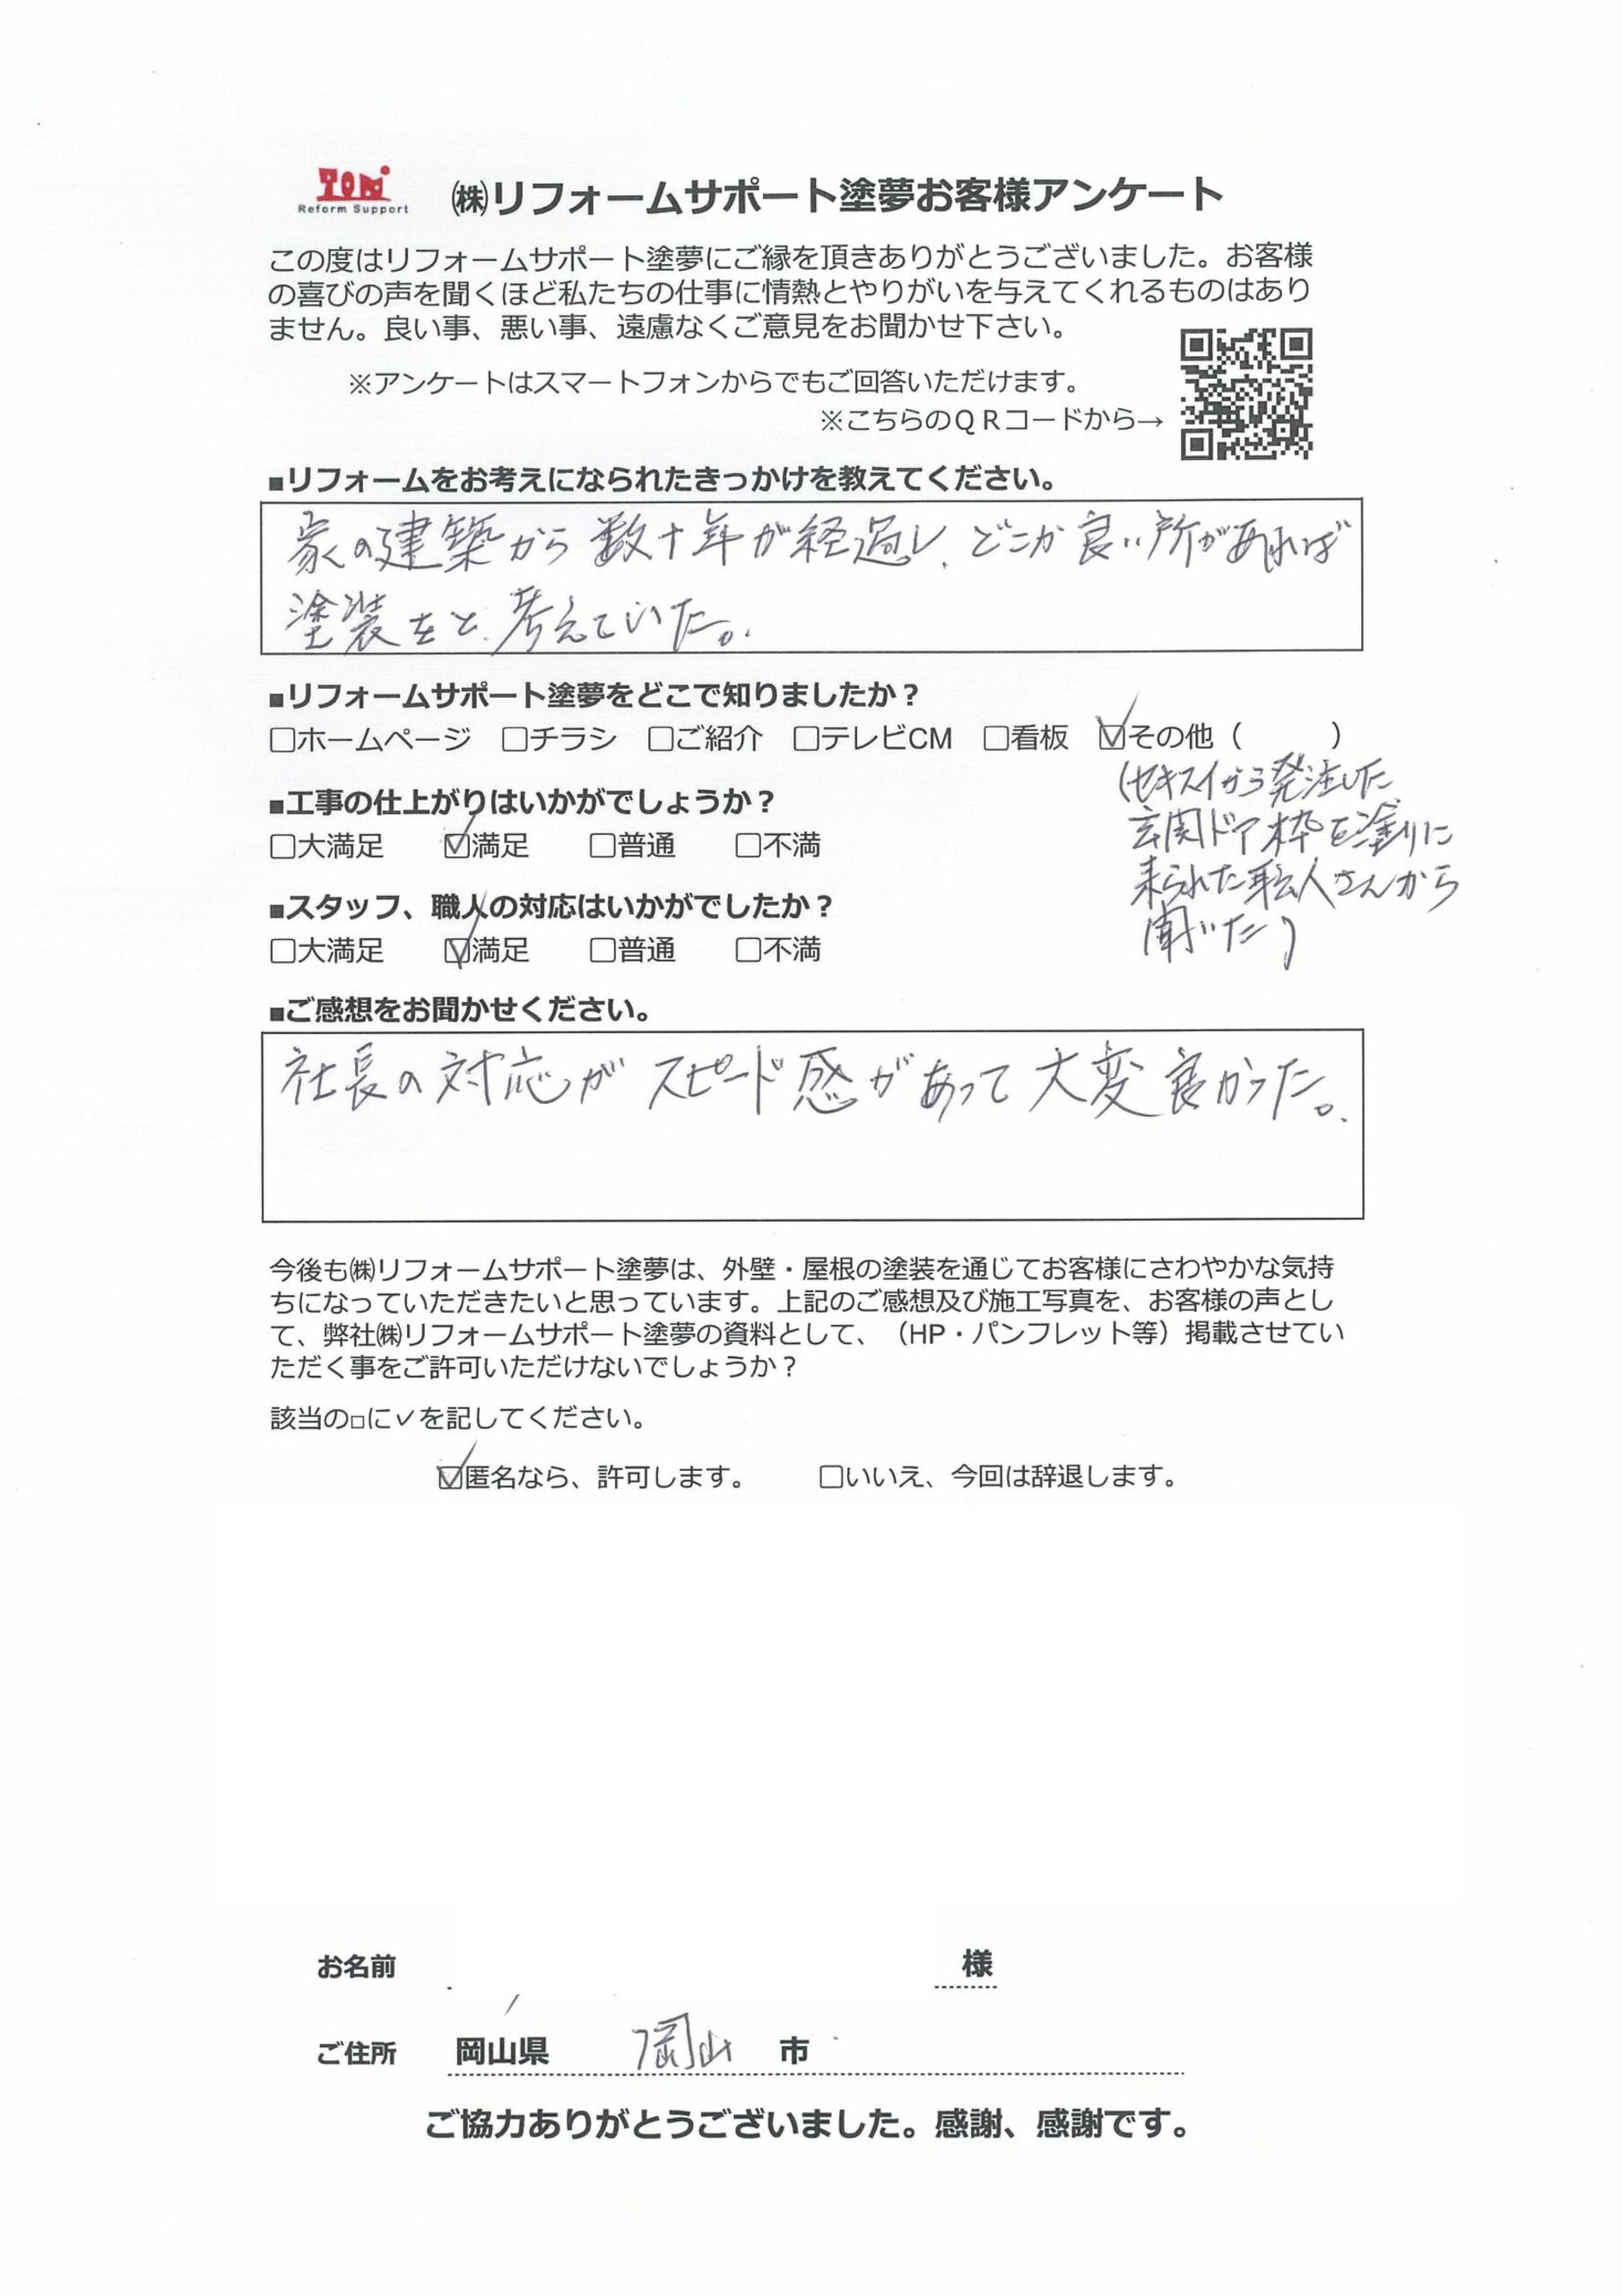 TOM
Reform Support
㈱リフォームサポート塗夢お客様アンケート
この度はリフォームサポート塗夢にご縁を頂きありがとうございました。お客様
の喜びの声を聞くほど私たちの仕事に情熱とやりがいを与えてくれるものはあり
ません。良い事、悪い事、遠慮なくご意見をお聞かせ下さい。
※アンケートはスマートフォンからでもご回答いただけます。
※こちらのＱＲコードから→
■リフォームをお考えになられたきっかけを教えてください。
家の建築から数十年が経過し、どこか良い所があれば
塗装をと、考えていた。
■リフォームサポート塗夢をどこで知りましたか？
□ホームページ □チラシ □ご紹介 □テレビCM □看板 ☑その他（ ）
(セキスイから発注した
玄関ドア枠を塗りに
来られた職人さんから
聞いた)
■工事の仕上がりはいかがでしょうか？
□大満足 ☑満足 □普通 □不満
■スタッフ、職人の対応はいかがでしたか？
□大満足 ☑満足 □普通 □不満
■ご感想をお聞かせください。
社長の対応がスピード感があって大変良かった。
今後も㈱リフォームサポート塗夢は、外壁・屋根の塗装を通じてお客様にさわやかな気持
ちになっていただきたいと思っています。上記のご感想及び施工写真を、お客様の声とし
て、弊社㈱リフォームサポート塗夢の資料として、（HP・パンフレット等）掲載させてい
ただく事をご許可いただけないでしょうか？
該当の□に✓を記してください。
☑匿名なら、許可します。 □いいえ、今回は辞退します。
お名前 様
ご住所 岡山県 岡山 市
ご協力ありがとうございました。感謝、感謝です。